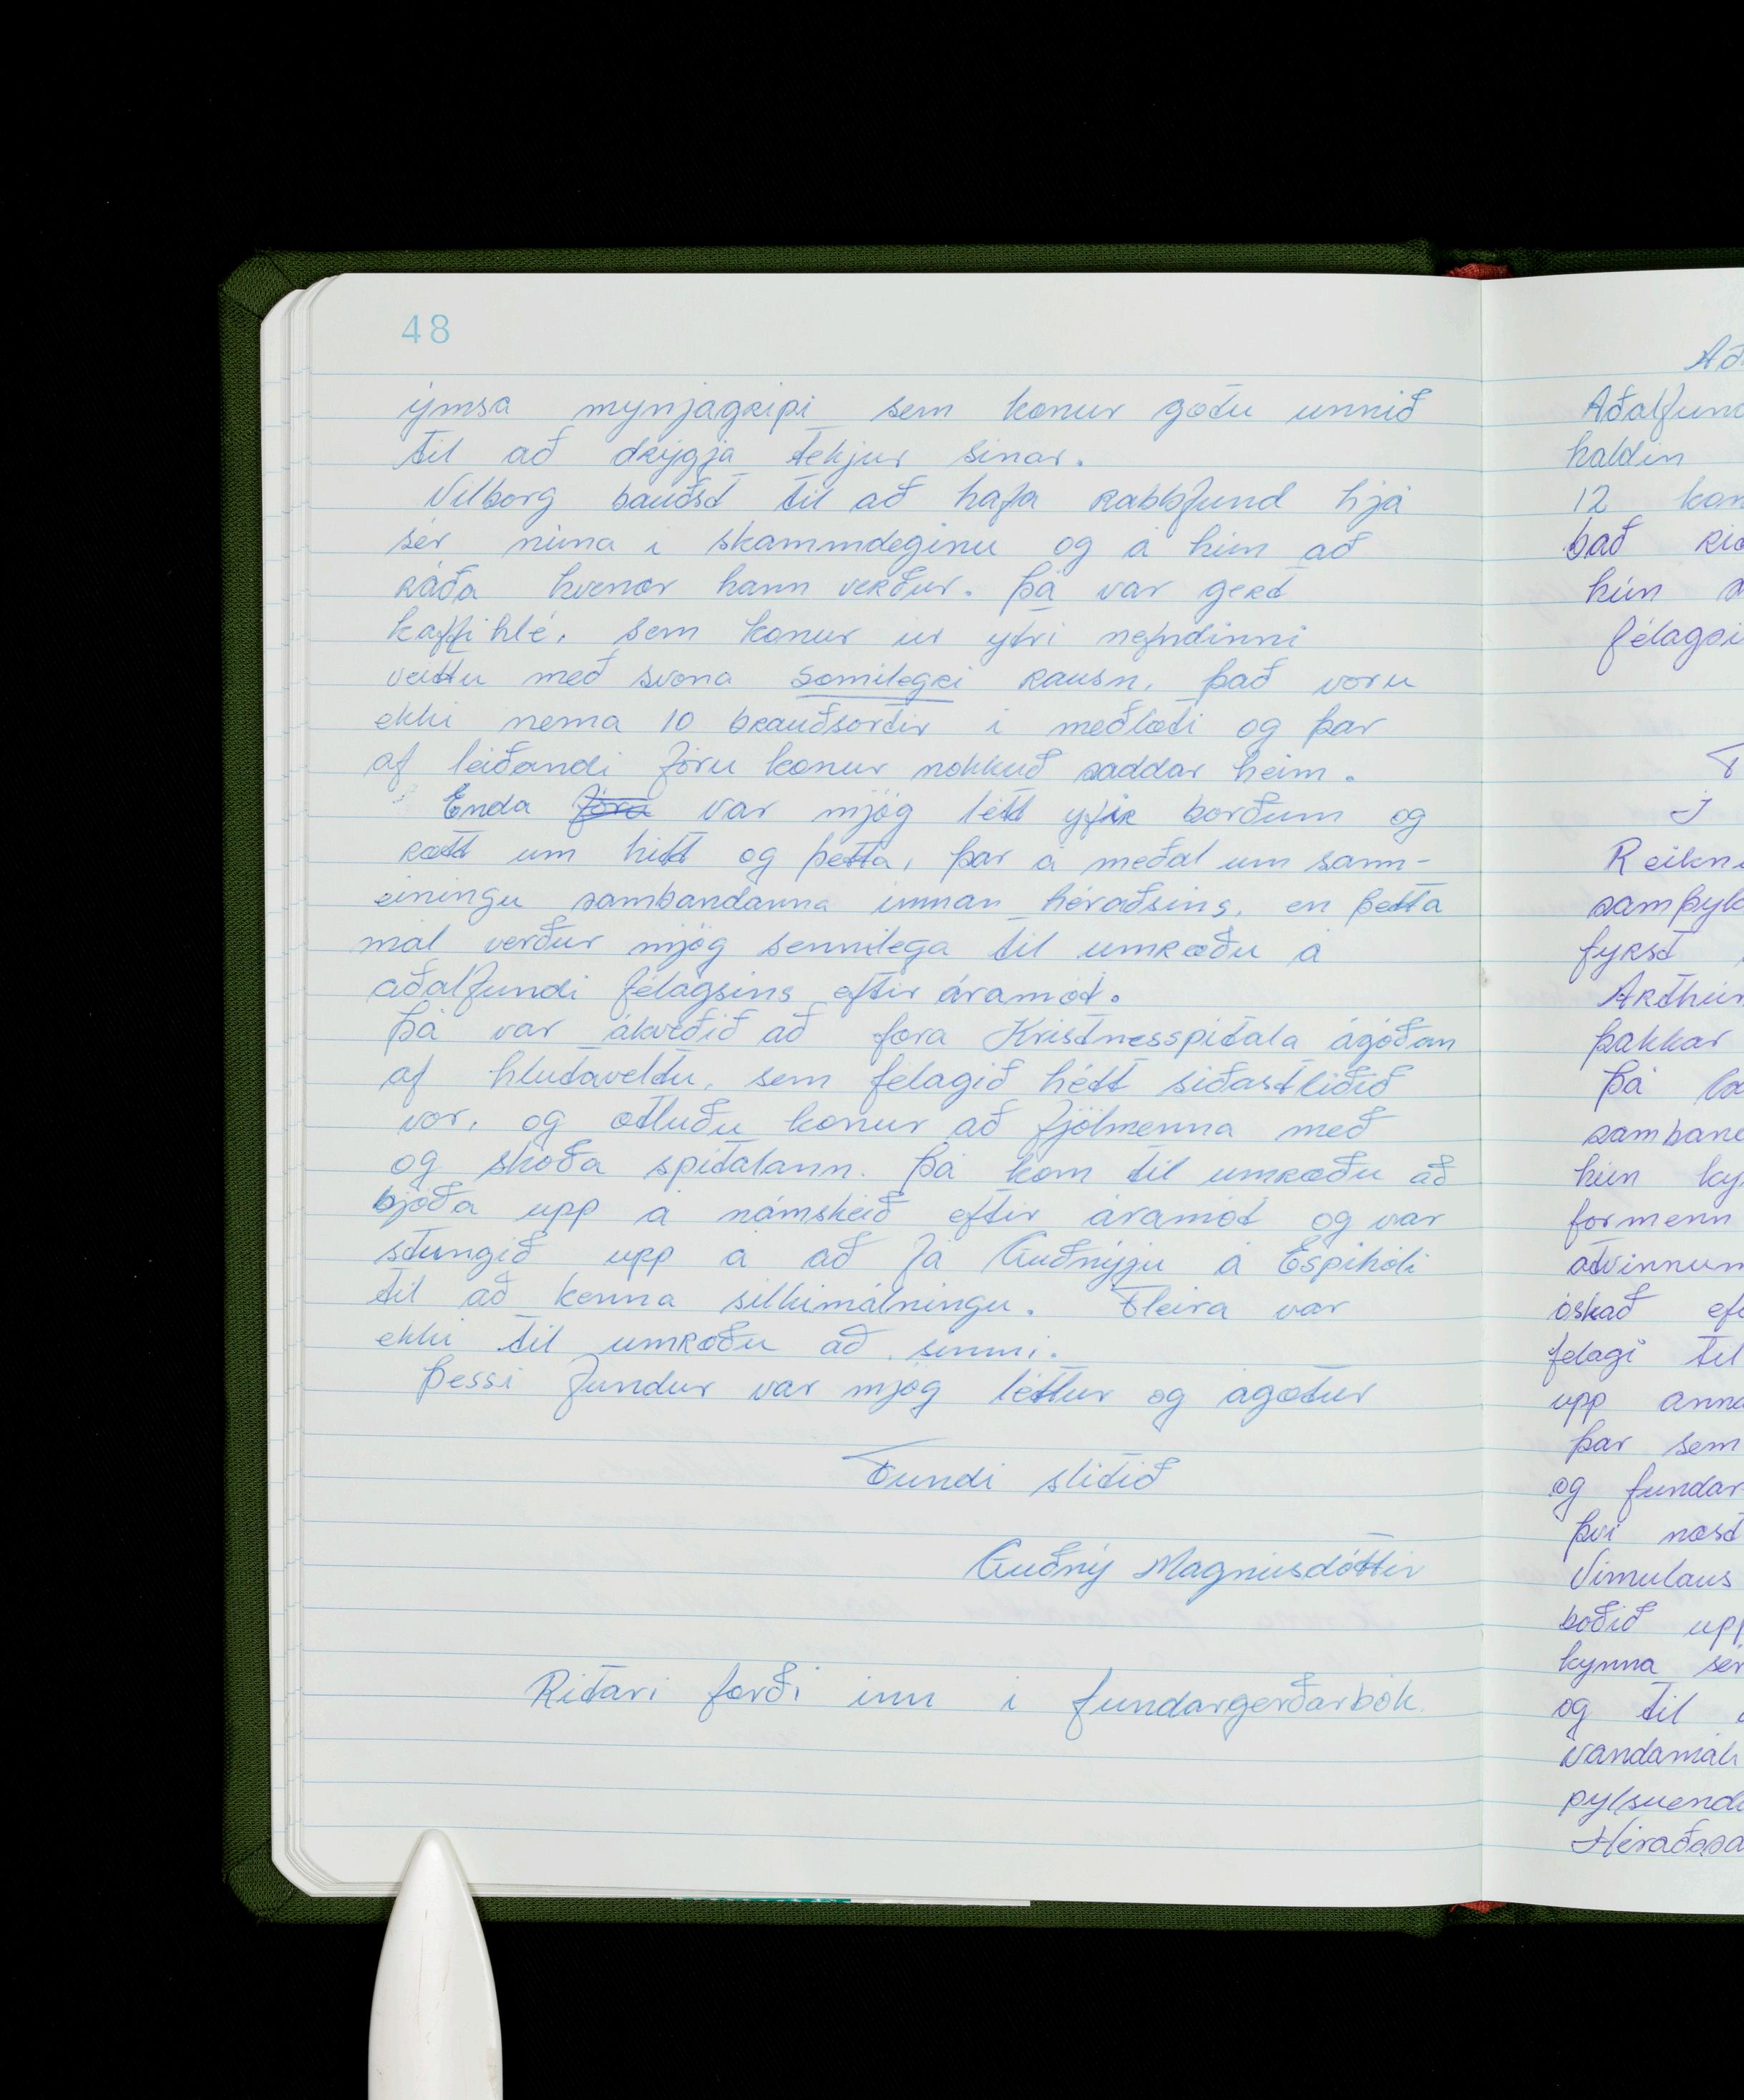 48
ýmsa mynjagripi sem konur gætu unnið
til að drýgja tekjur sinar.
Vilborg bauðst til að hafa rabbfund hjá
sér núna i skammdeginu og á hún að
ráða hvenær hann verður. Þá var gert
kaffihlé, sem konur úr ytri nefndinni
veittu með svona sæmilegri rausn, það voru
ekki nema 10 brauðsortir i meðlæti og þar
af leiðandi fóru konur nokkuð saddar heim.
Enda fóru var mjög létt yfir borðum og
rætt um hitt og þetta, þar á meðal um sam-
einingu sambandanna innan héraðsins, en þetta
mál verður mjög sennilega til umræðu á
aðalfundi félagsins eftir áramót.
Þá var ákveðið að færa Kristnesspitala ágóðan
af hlutaveltu, sem felagið hélt siðastliðið
vor, og ætluðu konur að fjölmenna með
og skoða spitalann. Þá kom til umræðu að
bjóða upp á námskeið eftir áramót og var
stungið upp á að fá Guðnýju á Espihóli
til að kenna silkimálningu. Fleira var
ekki til umræðu að sinni.
Þessi fundur var mjög léttur og ágætur
Fundi slitið
Guðný Magnúsdóttir
Ritari færði inn i fundargerðarbók.
Aðalfund
haldin
12 kon
bað
hún
félagsi
Reikn
samþyk
fyrst
Arthúr
þakkar
Þá
samband
hún ky
formenn
atvinnum
óskað ef
felagi til
upp anna
þar sem
og fundar
þvi næst
Vimulaus
boðið upp
kynna sér
og til
vandamál
pylsuend
Héraðssa